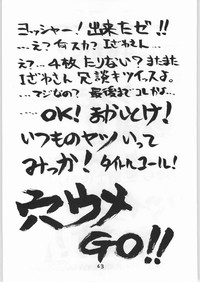 ヨッシャー!出来たゼ!!
…え?何スカ?Iざわさん
え?…4枚たりない?またまた
Iざわさん冗談キツイっスよ。
…マジなの?最後までコレかよ…
OK!おかしとけ!
いつものヤツいって
みっか!タイトルコール!
穴ウメ
GO!!
43